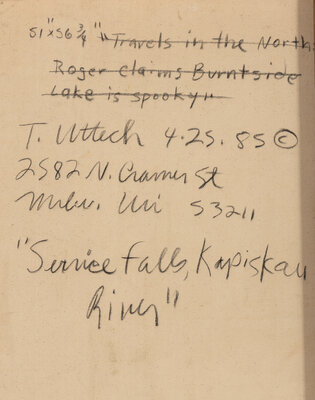 51"x56 3/4" "Travels in the North:
Roger claims Burntside
Lake is spooky"
T. Uttech 4.25.85 ©
2582 N. Cramer St
Milw. Wi 53211
"Service Falls, Kapiskau
River"